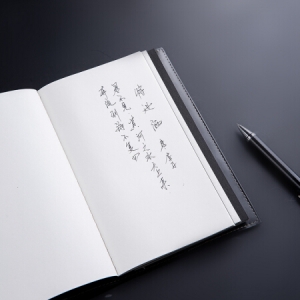 将进酒
君不见 黄河之水天上来
奔流到海不复回